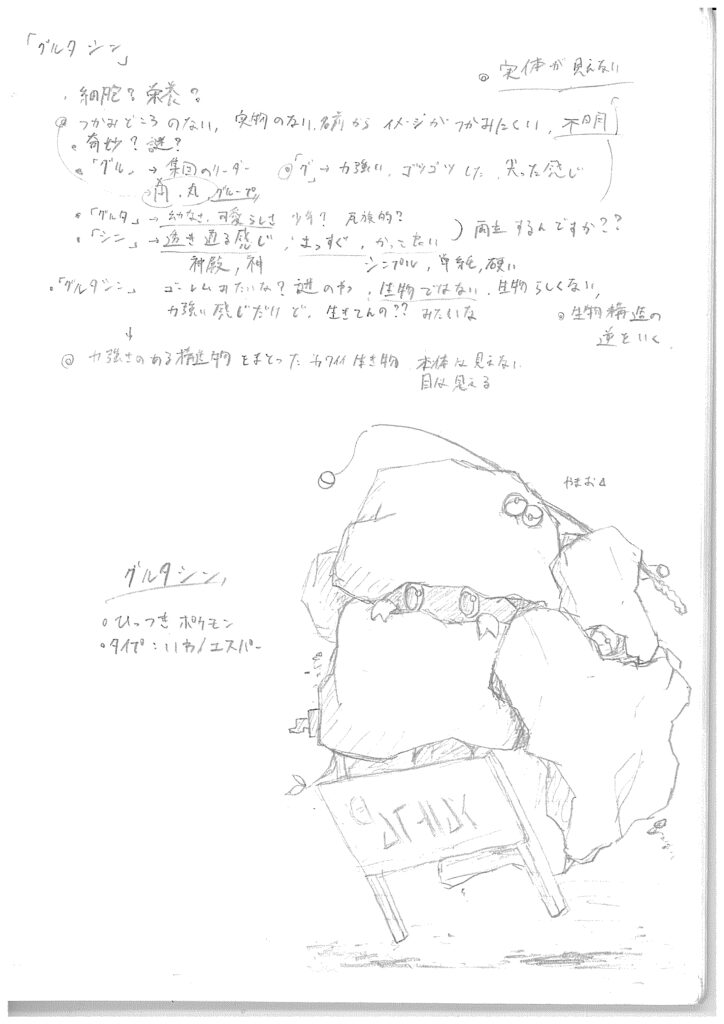 「グルタシン」
◎ 実体が見えない
・細胞? 栄養?
◎ つかみどころのない, 実物のない, 名前からイメージがつかみにくい, 不明
・奇妙? 謎?
・「グル」→ 集団のリーダー ◎「グ」→ 力強い, ゴツゴツした, 尖った感じ
→ 円, 丸, グループ
・「グルタ」→ 幼なさ, 可愛らしさ 少年? 民族的?
・「シン」→ 透き通る感じ, まっすぐ, かってたい ) 両立するんですか??
神殿, 神 シンプル, 単純, 硬い
・「グルタシン」 ゴーレムみたいな? 謎のやつ, 生物ではない, 生物らしくない,
力強い感じだけど, 生きてんの?? みたいな
◎ 生物構造の
逆をいく
◎ 力強さのある構造物をまとったカワイイ生き物 本体は見えない
目は見える
やまお
グルタシン,
・ひっつきポケモン
・タイプ:いわ/エスパー